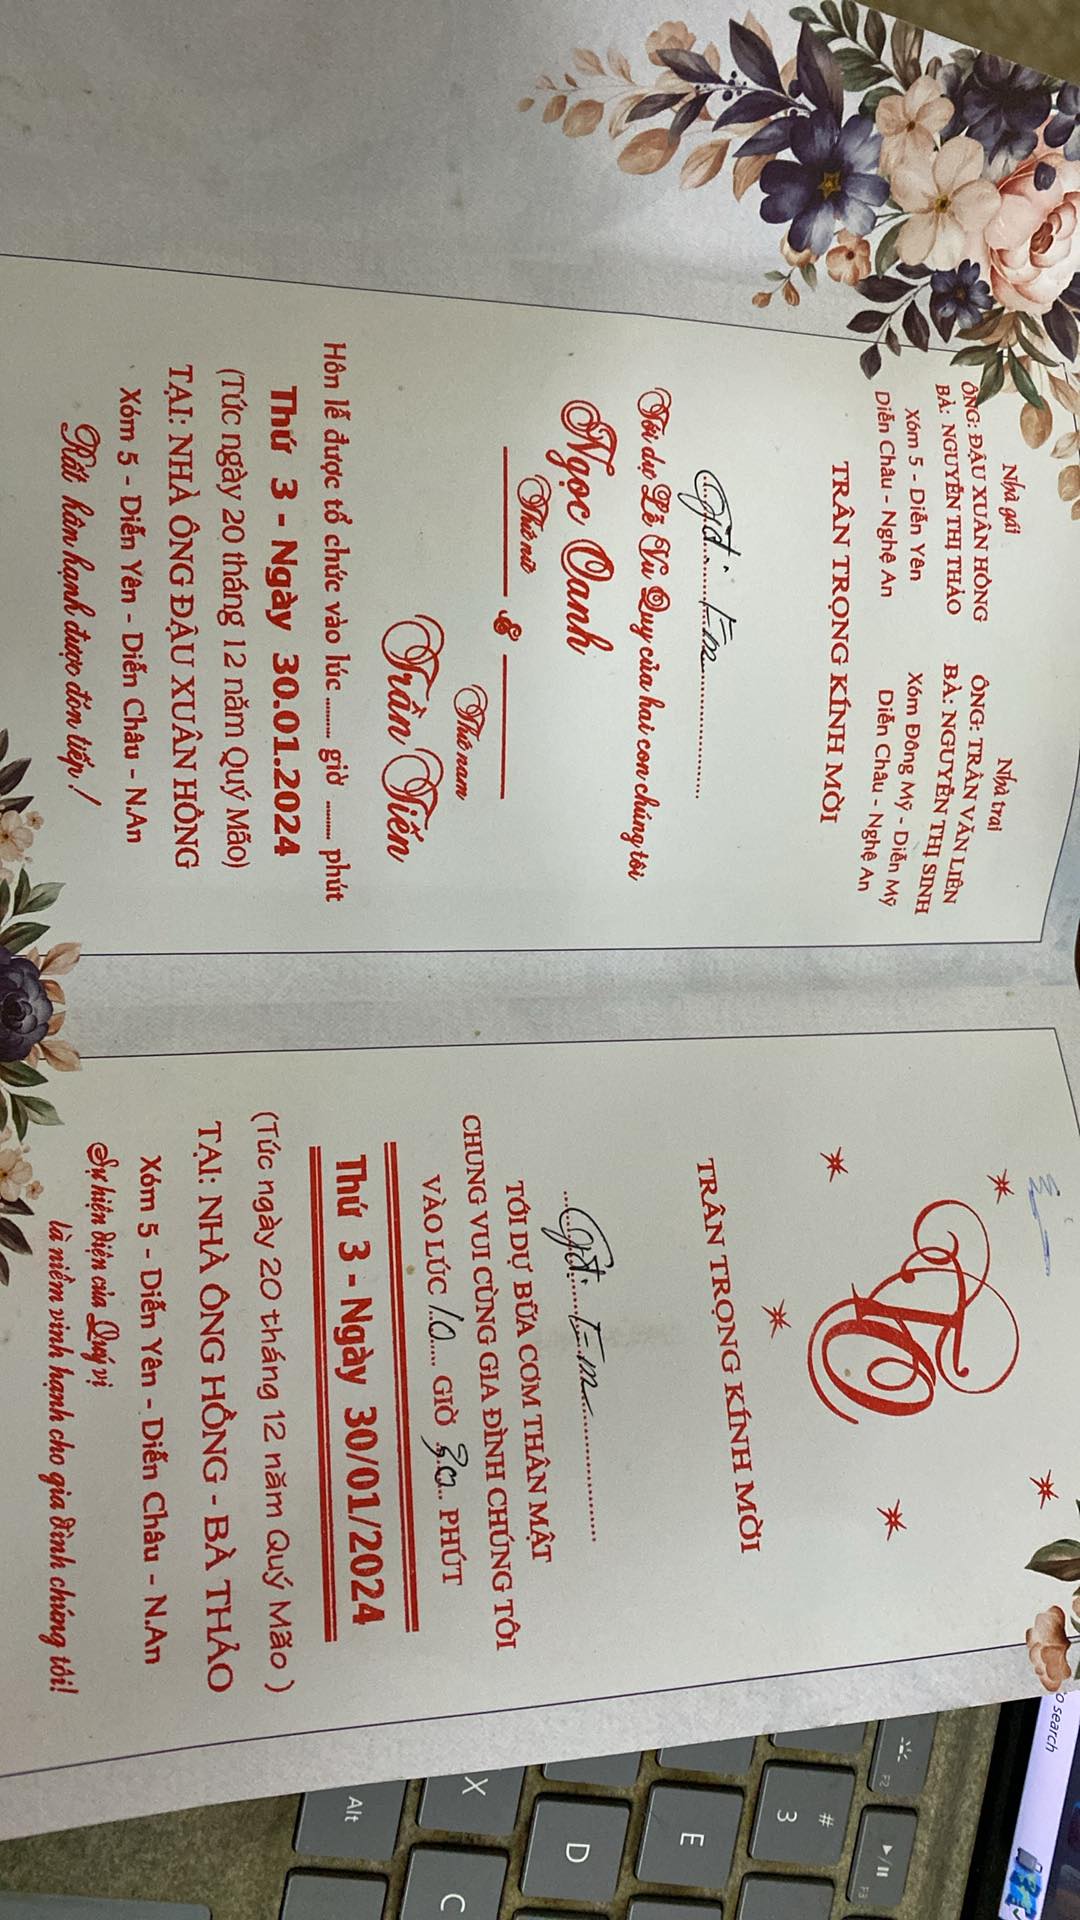 Nhà gái
ÔNG: ĐẬU XUÂN HỒNG
BÀ: NGUYỄN THỊ THẢO
Xóm 5 - Diễn Yên
Diễn Châu - Nghệ An
Nhà trai
ÔNG: TRẦN VĂN LIÊN
BÀ: NGUYỄN THỊ SINH
Xóm Đông Mỹ - Diễn Mỹ
Diễn Châu - Nghệ An
TRÂN TRỌNG KÍNH MỜI
Gđ: Em
Tới dự Lễ Vu Quy của hai con chúng tôi
Ngọc Oanh
Thứ nữ
&
Thứ nam
Trần Tiến
Hôn lễ được tổ chức vào lúc ........ giờ ........ phút
Thứ 3 - Ngày 30.01.2024
(Tức ngày 20 tháng 12 năm Quý Mão)
TẠI: NHÀ ÔNG ĐẬU XUÂN HỒNG
Xóm 5 - Diễn Yên - Diễn Châu - N.An
Rất hân hạnh được đón tiếp !
TO
TRÂN TRỌNG KÍNH MỜI
Gđ: Em
TỚI DỰ BỮA CƠM THÂN MẬT
CHUNG VUI CÙNG GIA ĐÌNH CHÚNG TÔI
VÀO LÚC 10 GIỜ 30 PHÚT
Thứ 3 - Ngày 30/01/2024
(Tức ngày 20 tháng 12 năm Quý Mão )
TẠI: NHÀ ÔNG HỒNG - BÀ THẢO
Xóm 5 - Diễn Yên - Diễn Châu - N.An
Sự hiện diện của Quý vị
là niềm vinh hạnh cho gia đình chúng tôi!
search
F2
F3
#
3
E
D
X
C
Alt